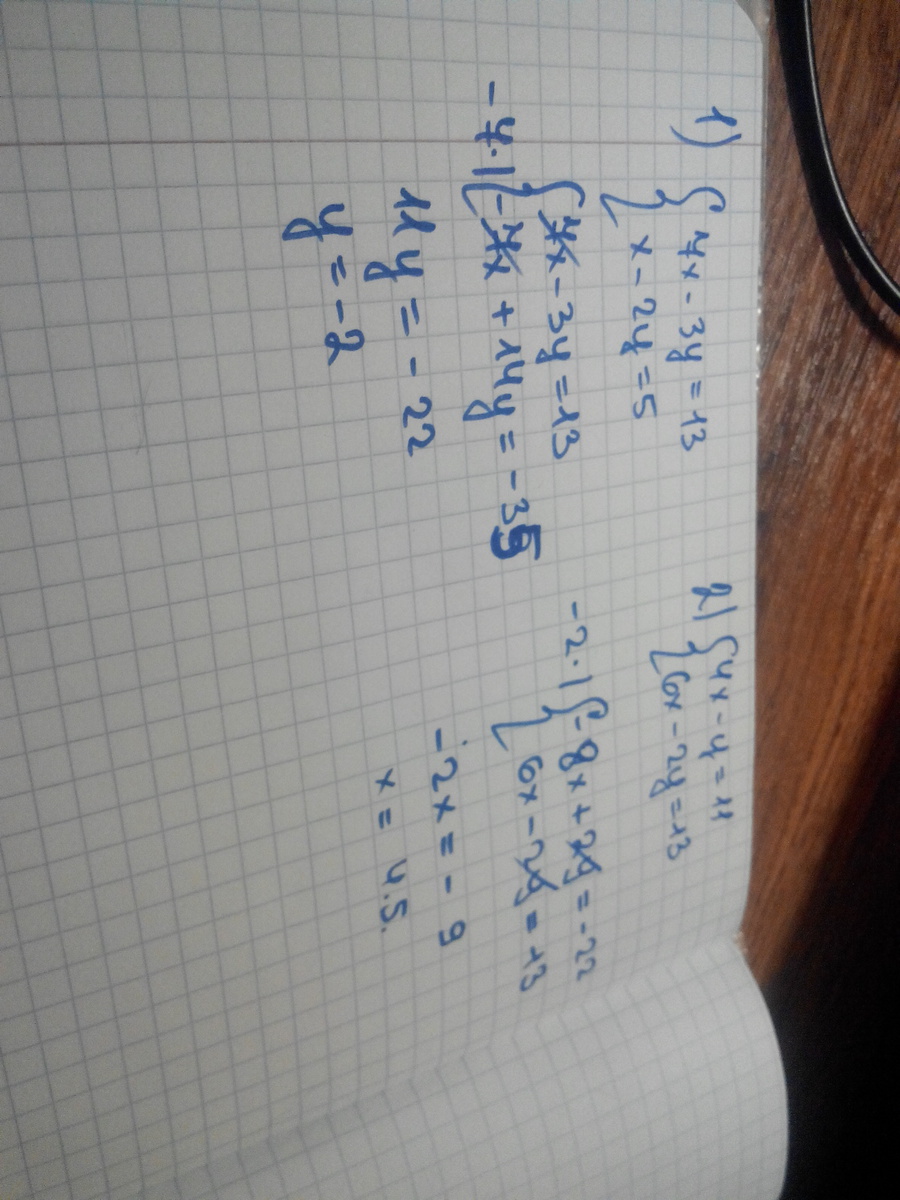 1) { 7x - 3y = 13
x - 2y = 5
{ 7x - 3y = 13
-7·| -7x + 14y = -35
11y = -22
y = -2
2) { 4x - y = 11
6x - 2y = 13
-2·| { -8x + 2y = -22
6x - 2y = 13
-2x = -9
x = 4.5.